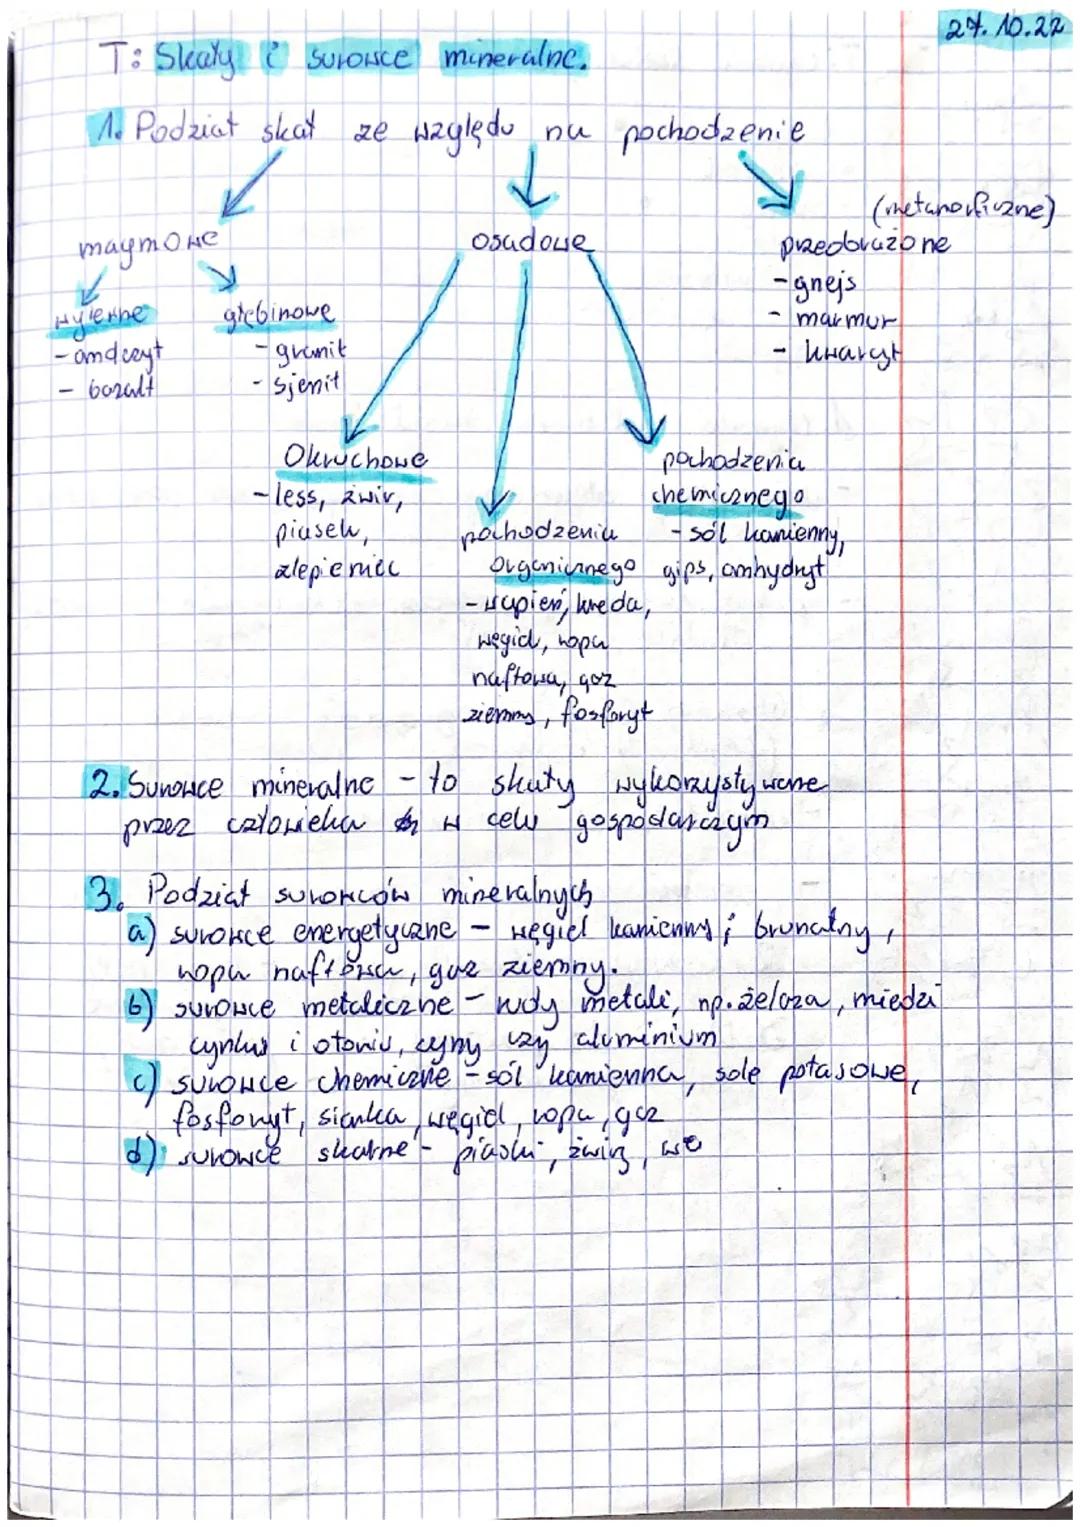 27.10.22
T: Skały i surowce mineralne.
1. Podział skał ze względu na pochodzenie
(metamorficzne)
magmowe
osadowe
przeobrażone
- gnejs
- marmur
- kwarcyt
wylewne
- andezyt
- bazalt
głębinowe
- granit
- Sjenit
Okruchowe
- less, żwir,
piasek,
zlepieniec
pochodzenia
Organicznego
- wapień, kreda,
węgiel, ropa
naftowa, gaz
ziemny, fosforyt
pochodzenia
chemicznego
- sól kamienny,
gips, anhydryt
2. Surowce mineralne - to skały wykorzystywane
przez człowieka w celu gospodarczym
3. Podział surowców mineralnych
a) surowce energetyczne - węgiel kamienny i brunatny,
ropa naftowa, gaz ziemny.
b) surowce metaliczne - rudy metali, np. żelaza, miedzi
cynku i ołowiu, cyny czy aluminium
c) surowce chemiczne - sól kamienna, sole potasowe,
fosforyt, siarka, węgiel, ropa, gaz
d) surowce skalne - piaski, żwir,